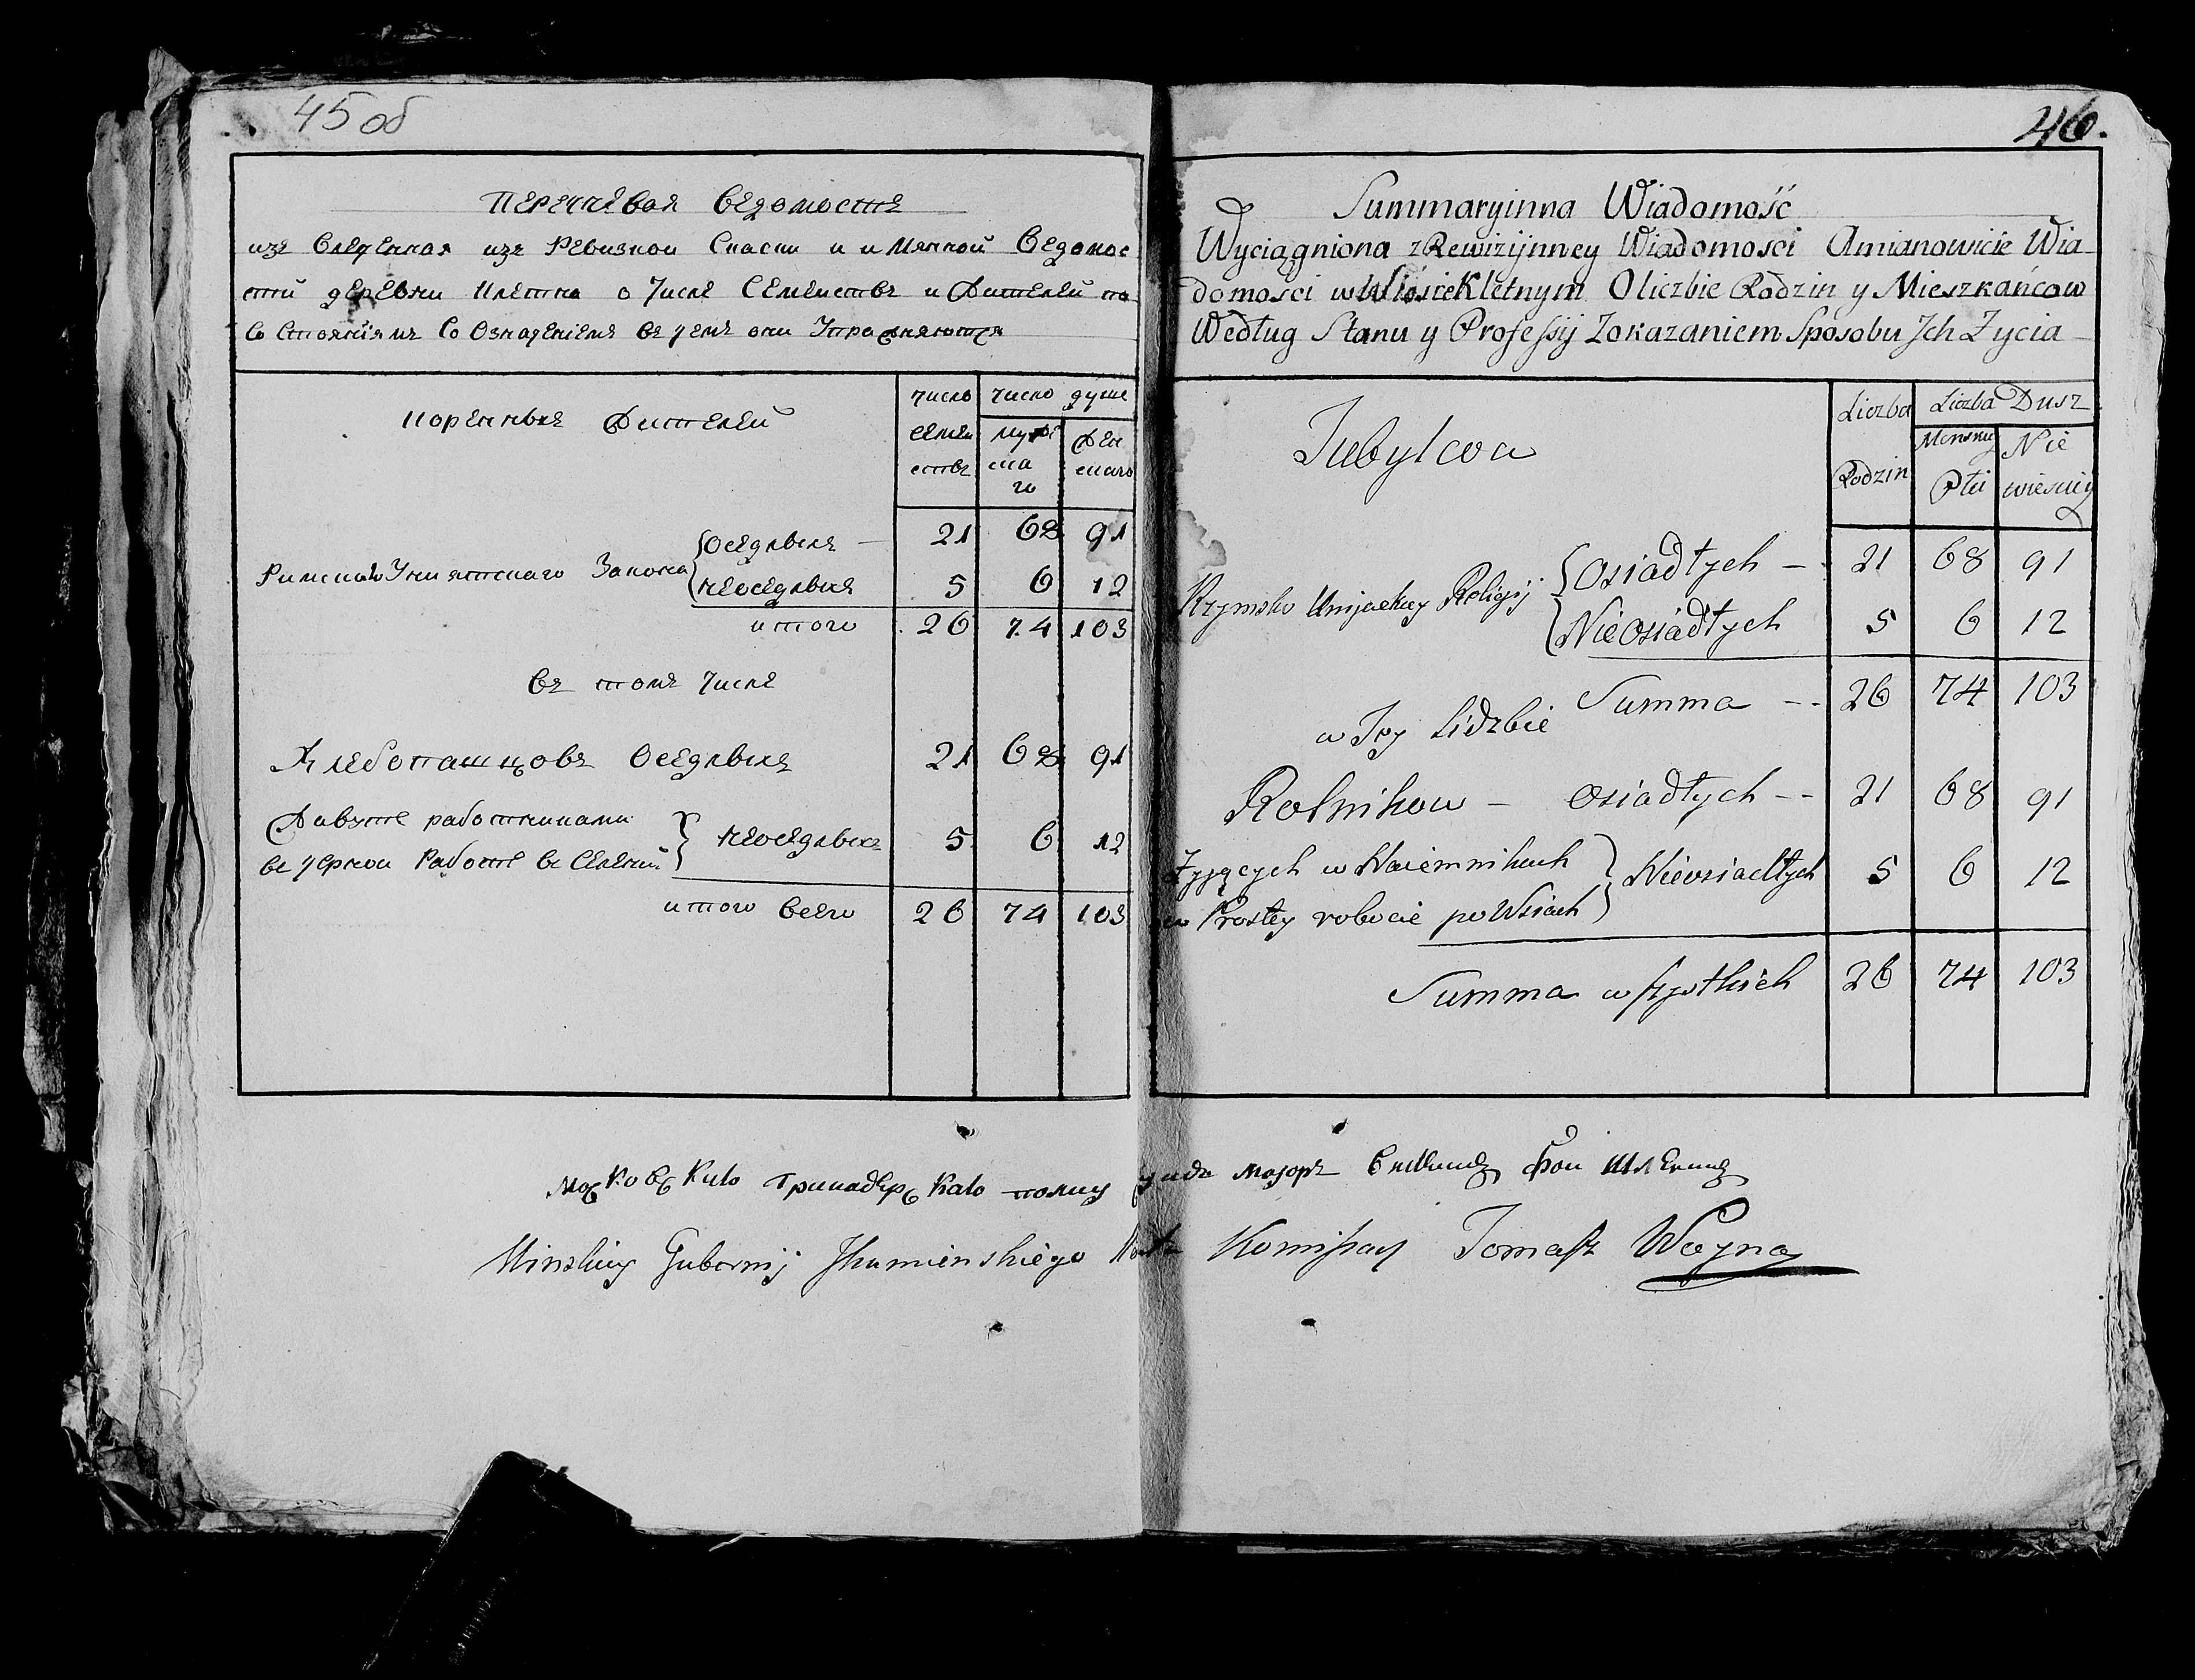 45 об
Перечневая ведомость
изъ влеченная изъ Ревизкои Спаски и имянной Ведомос
ти деревни Клетна о Числе Семеиствъ и Жителей по
Со стояніямъ Со Означеніемъ въ чемъ они Упражняются
Коренныхъ Жителей
число семеи ствъ
число душъ
мужс ка го
женскаго
Римскаго Униятскаго Закона
Оседлыхъ — 21 68 91
неоседлыхъ 5 6 12
итого 26 74 103
въ томъ Числе
Хлебопашцовъ Оседлыхъ 21 68 91
Живутъ работниками
въ черной Работе въ Селеній
неоседлыхъ 5 6 12
итого всего 26 74 103
46.
Summaryinna Wiadomość
Wyciągniona z Rewizijnney Wiadomosci Amianowicie Wia-
domosci w Wiosce Kletnym O liczbie Rodzin y Mieszkańcow
Według Stanu y Professij Zokazaniem Sposobu Jch Zycia
Tubylcow
Liczba Rodzin
Liczba Dusz
Menskiy Płci
Nie wieskiy
Rzymsko Unijackiey Religij
Osiadłych — 21 68 91
Nieosiadłych 5 6 12
Summa -- 26 74 103
w Tey Lidzbie
Rolnikow — osiadłych -- 21 68 91
Zyjących w Naiemnikach
w Prostey robocie po Wsiach
Nieosiadłych 5 6 12
Summa wszystkich 26 74 103
Московскиго Гринадерскаго полку маіоръ фон
Minskiey Gubernij Jhumienskiego Komissarz Tomasz Woyna